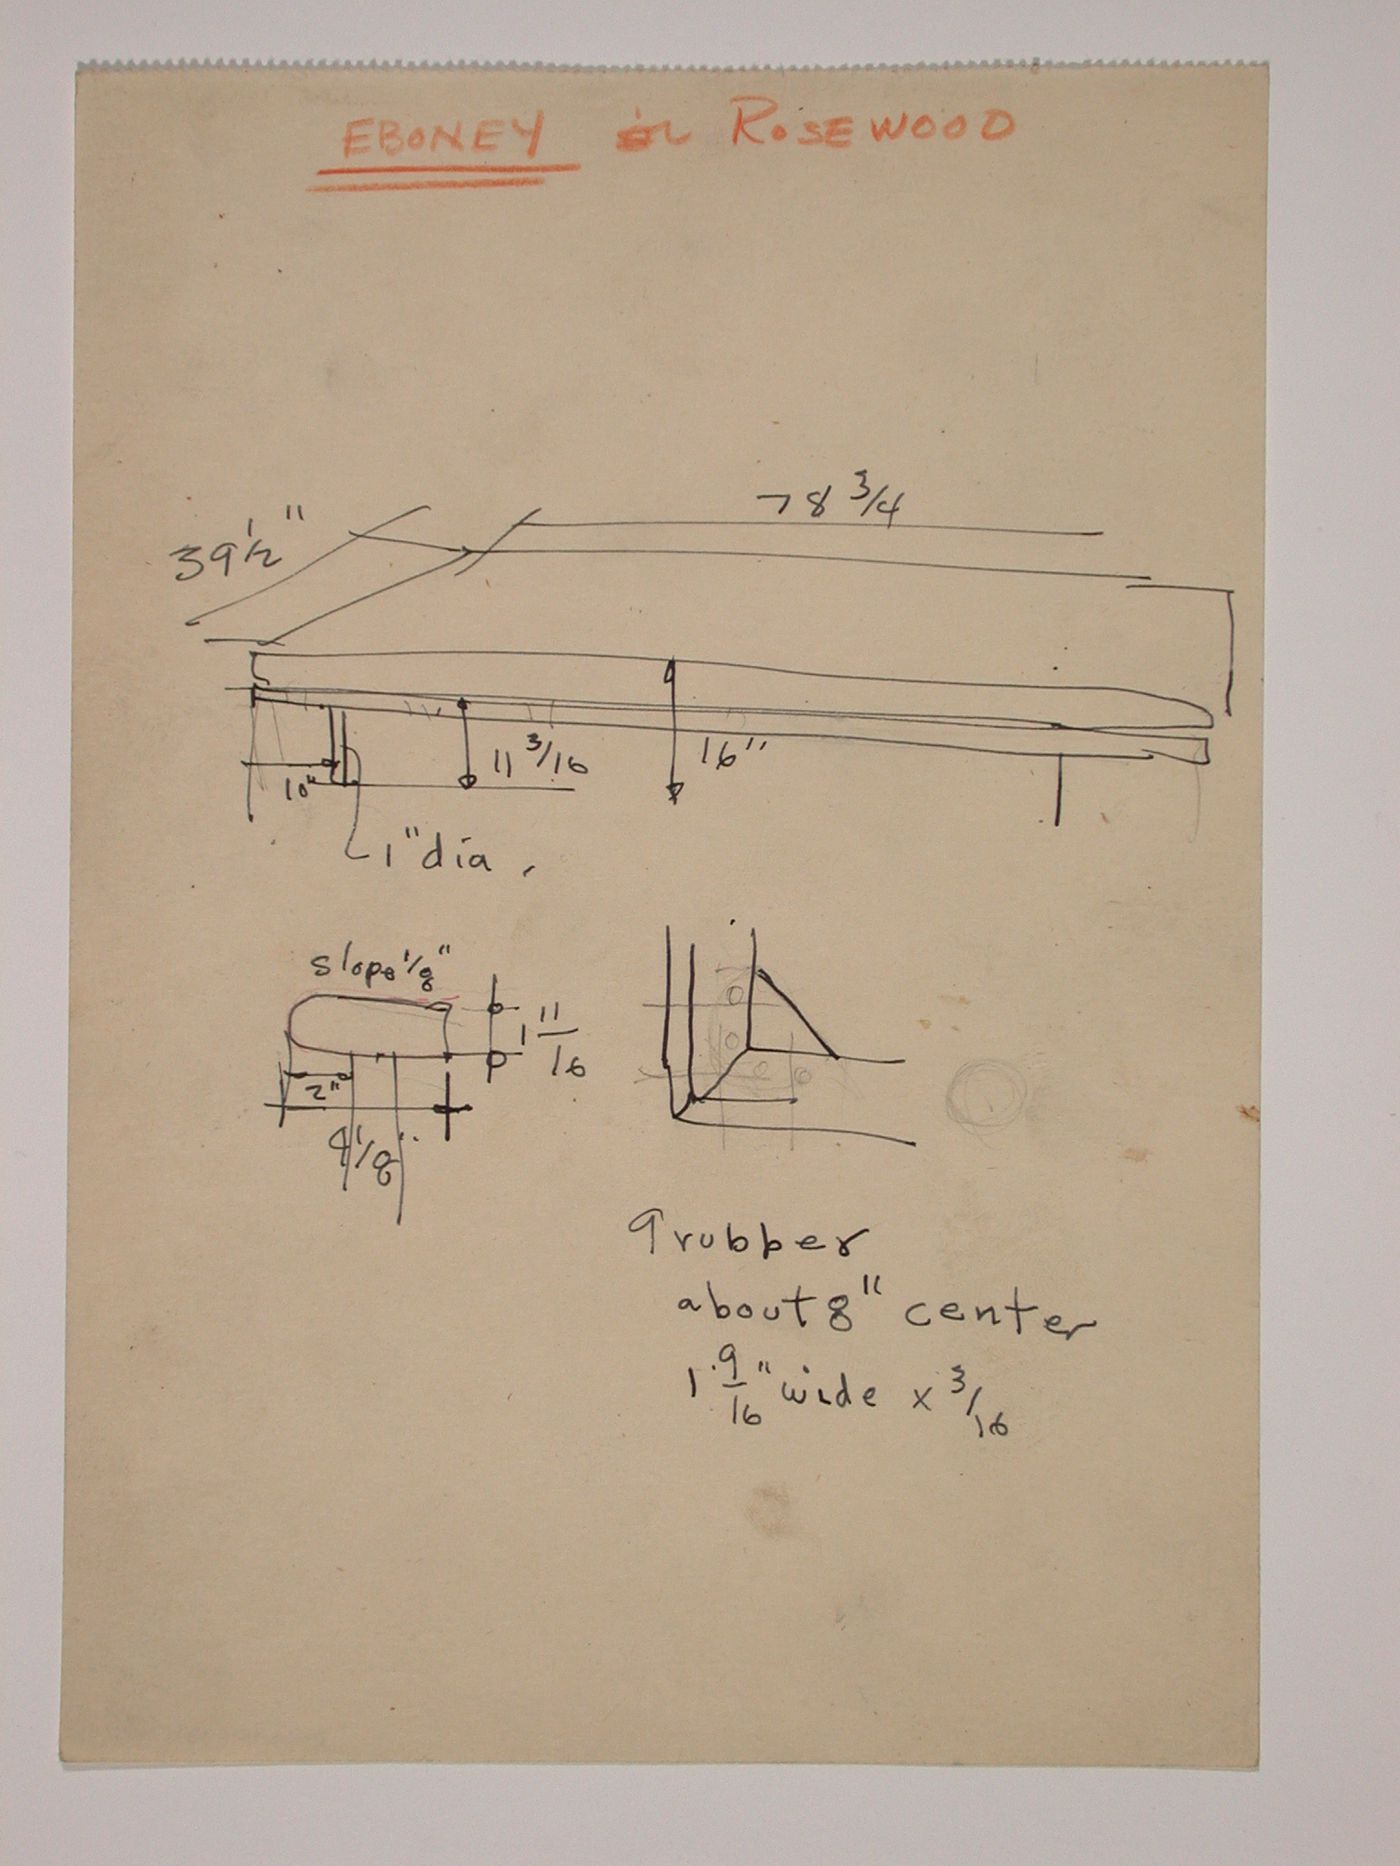 EBONEY or ROSEWOOD
78 3/4
39 1/2"
11 3/16
16"
10"
1" dia.
slope 1/8"
1 11/16
2"
4 1/8"
9 rubber
about 8" center
1 9/16" wide x 3/16